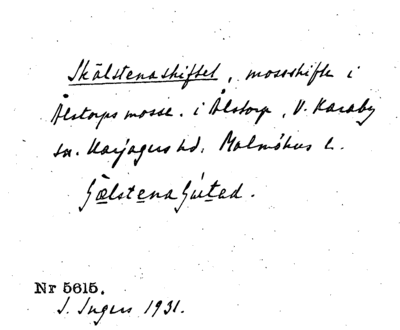 Skälstenaskiftet, mosskifte i
Ålstorps mosse. i Ålstorp, V. Karaby
sn. Harjagers hd. Malmöhus l.
Nr 5615.
I. Ingers 1931.